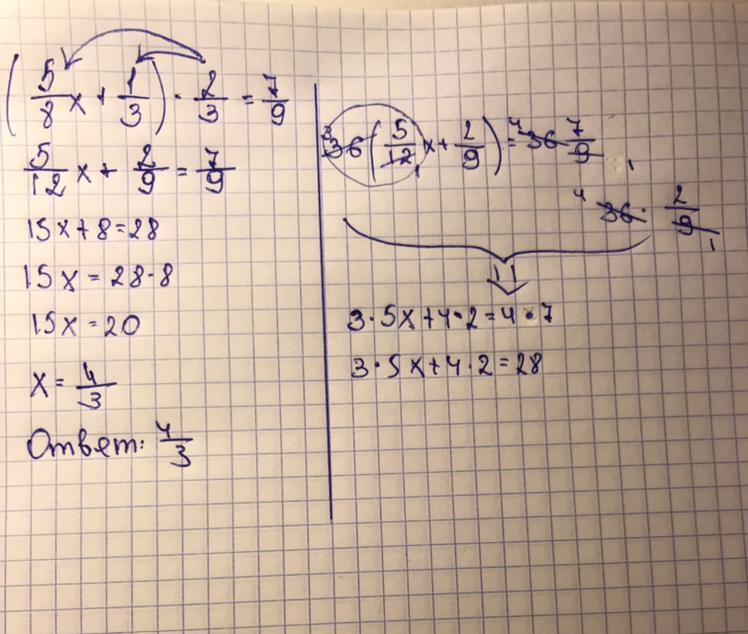 (5/8 x + 1/3) · 2/3 = 7/9
5/12 x + 2/9 = 7/9
15x + 8 = 28
15x = 28 - 8
15x = 20
x = 4/3
Ответ: 4/3
3 36 (5/12 1 x + 2/9) = 4 36 7/9 1
4 36 · 2/9 1
3 · 5x + 4 · 2 = 4 · 7
3 · 5x + 4 · 2 = 28